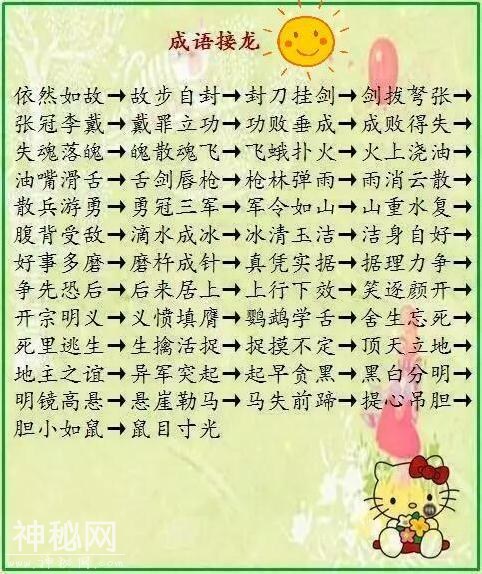 成语接龙
依然如故→故步自封→封刀挂剑→剑拔弩张→
张冠李戴→戴罪立功→功败垂成→成败得失→
失魂落魄→魄散魂飞→飞蛾扑火→火上浇油→
油嘴滑舌→舌剑唇枪→枪林弹雨→雨消云散→
散兵游勇→勇冠三军→军令如山→山重水复→
腹背受敌→滴水成冰→冰清玉洁→洁身自好→
好事多磨→磨杵成针→真凭实据→据理力争→
争先恐后→后来居上→上行下效→笑逐颜开→
开宗明义→义愤填膺→鹦鹉学舌→舍生忘死→
死里逃生→生擒活捉→捉摸不定→顶天立地→
地主之谊→异军突起→起早贪黑→黑白分明→
明镜高悬→悬崖勒马→马失前蹄→提心吊胆→
胆小如鼠→鼠目寸光
神秘网